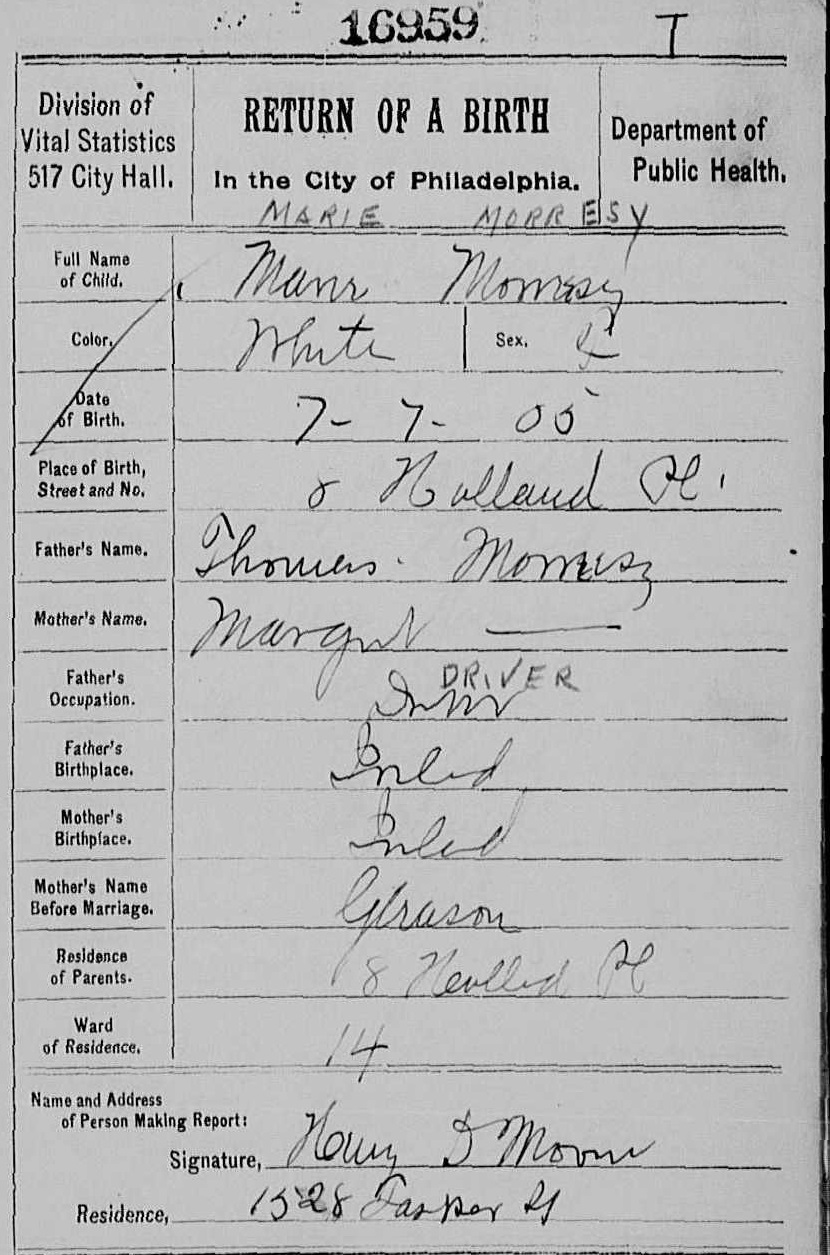 16959 T
Division of Vital Statistics 517 City Hall.
RETURN OF A BIRTH
In the City of Philadelphia.
Department of Public Health.
MARIE MORRESY
Full Name of Child. Marie Morresy
Color. White Sex. F
Date of Birth. 7 - 7 - 05
Place of Birth, Street and No. 8 Holland Pl.
Father's Name. Thomas Morresy
Mother's Name. Margrt —
DRIVER
Father's Occupation. Driver
Father's Birthplace. Irelad
Mother's Birthplace. Irelad
Mother's Name Before Marriage. Gleason
Residence of Parents. 8 Hollad Pl
Ward of Residence. 14
Name and Address of Person Making Report:
Signature, Harry D Moore
Residence, 1528 Tasker St